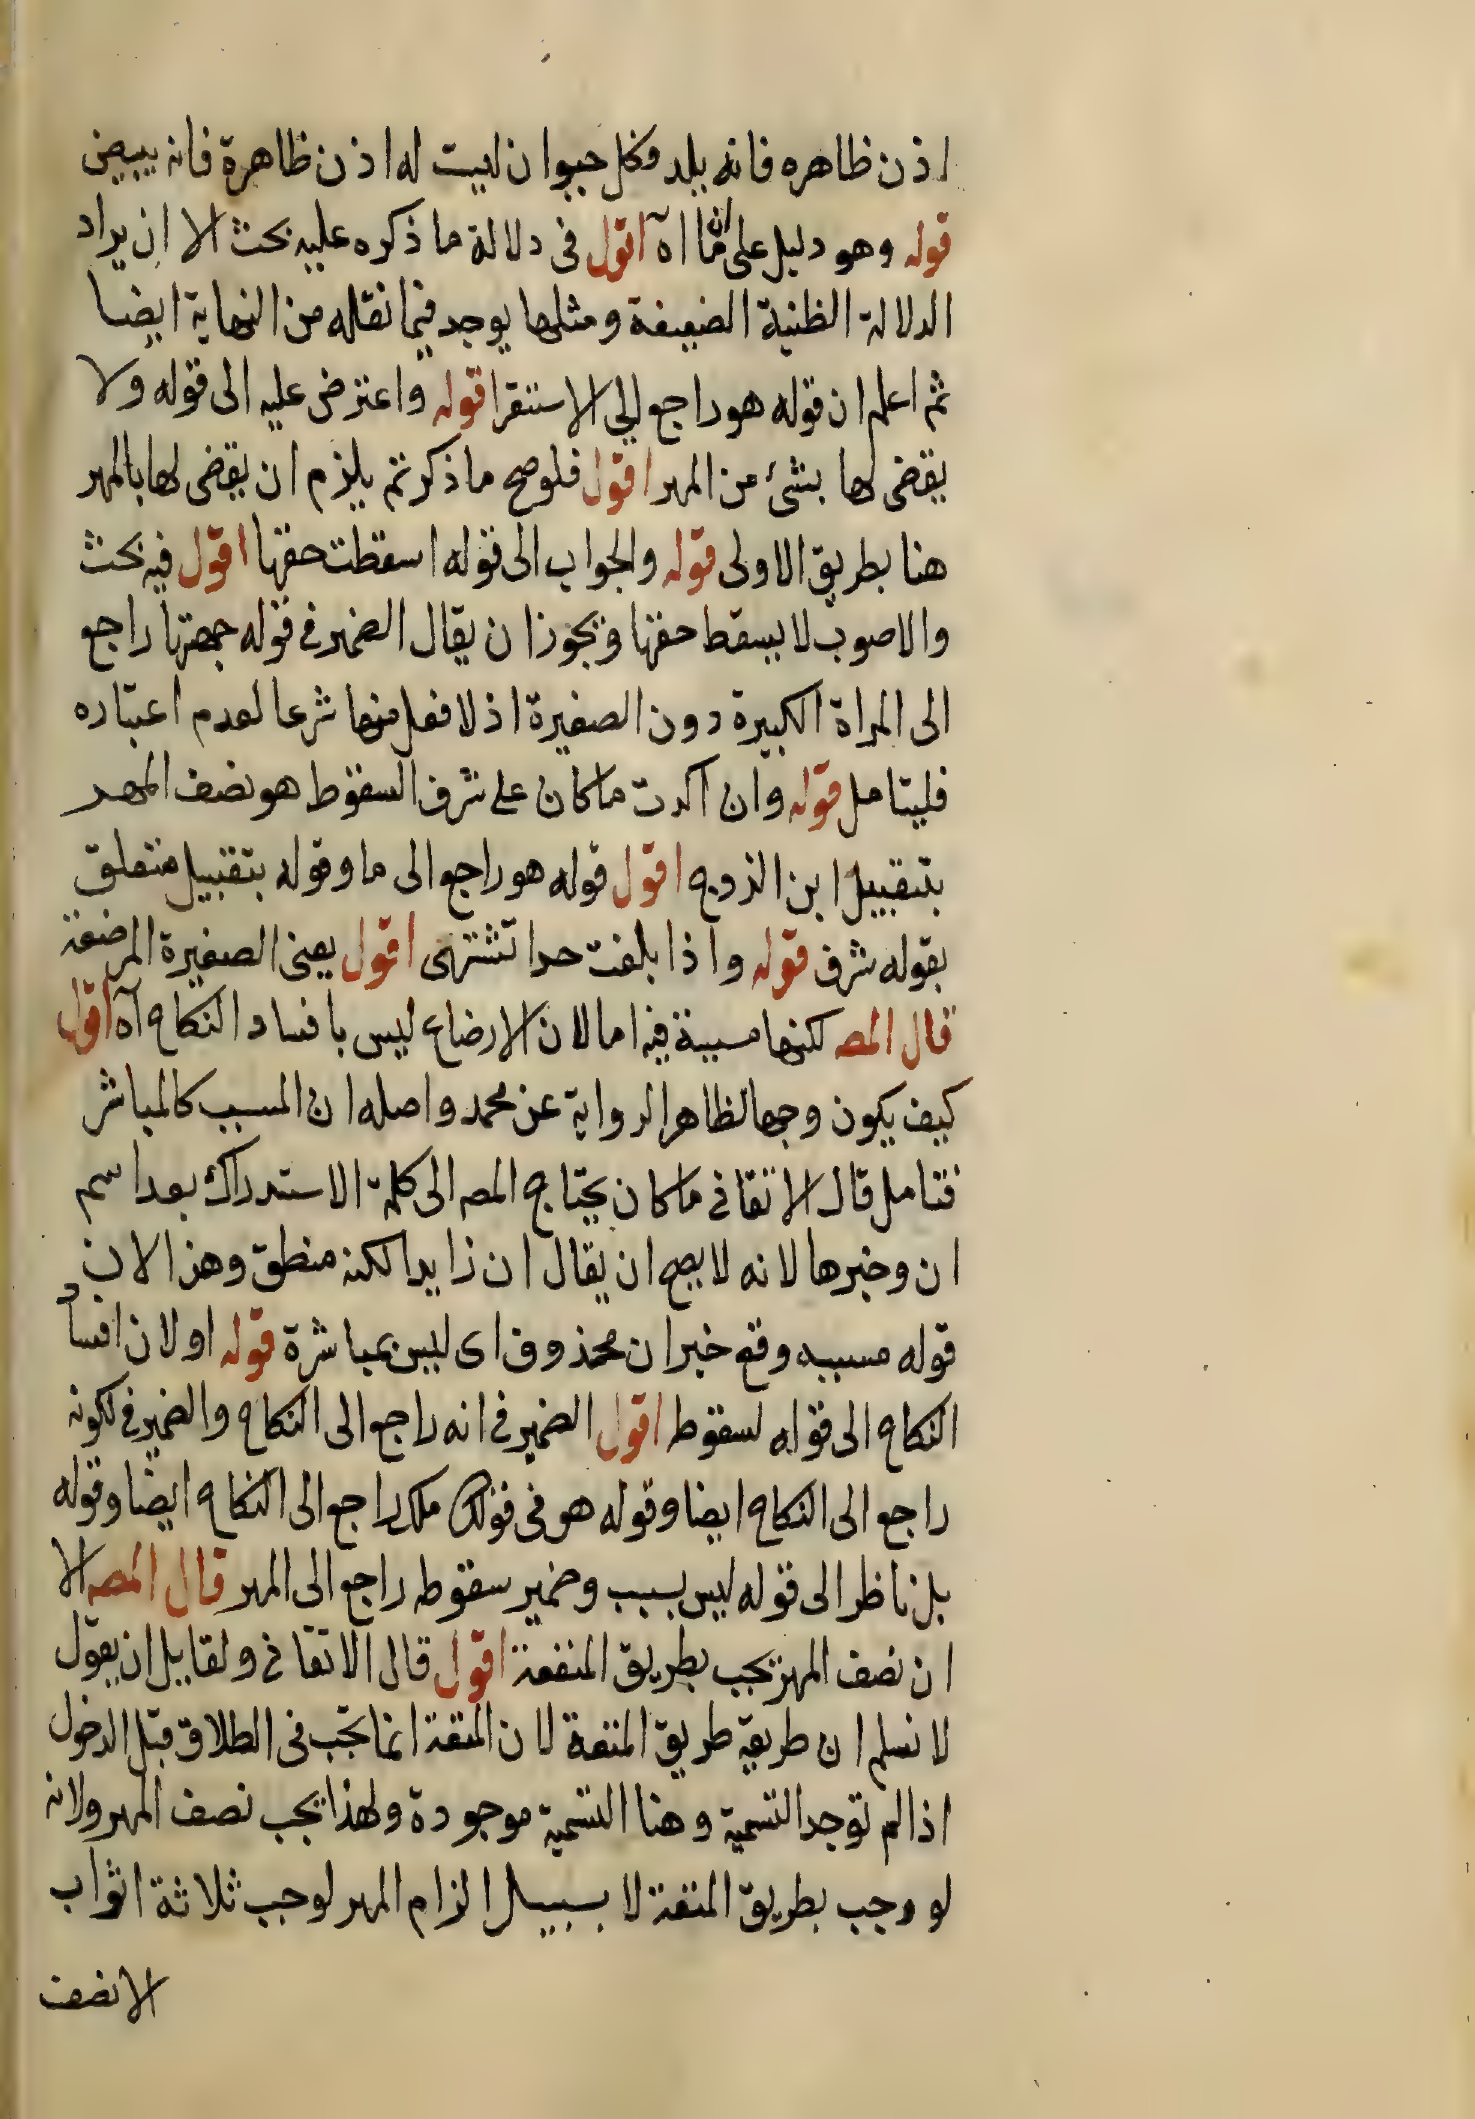 اذن ظاهره فانه يلد وكل حيوان ليت له اذن ظاهرة فانه يبيض
قوله وهو دليل على انما اه اقول فى دلالة ما ذكره عليه بحث الا ان يراد
الدلالة الظنية الضعيفة ومثلها يوجد فيما نقله من النهاية ايضا
ثم اعلم ان قوله هو راجع الى الاستقرا قوله واعترض عليه الى قوله ولا
يقضى لها بشئ من المهر اقول فلو صح ما ذكرتم يلزم ان يقضى لها بالمهر
هنا بطريق الاولى قوله والجواب الى قوله اسقطت حقها اقول فيه بحث
والاصوب لا يسقط حقها ويجوز ان يقال الضمير فى قوله جهتها راجع
الى المراة الكبيرة دون الصغيرة اذ لا فعل منها شرعا لعدم اعتباره
فليتامل قوله وان اكدت ما كان على شرف السقوط هو نصف المهر
بتقبيل ابن الزوج اقول قوله هو راجع الى ما وقوله بتقبيل متعلق
بقوله شرف قوله واذا بلغت حدا تشتهى اقول يعنى الصغيرة المرضعة
قال المصه لكنها مسببة فيه اما لان الارضاع ليس بافساد النكاح اه اقول
كيف يكون وجها لظاهر الرواية عن محمد واصله ان المسبب كالمباشر
فتامل قال الاتقانى ما كان يحتاج المصه الى كلمة الاستدراك بعد اسم
ان وخبرها لانه لا يصح ان يقال ان زايدا لكنه منطق وهذا لان
قوله مسببه وقع خبر ان محذوف اى ليس بمباشرة قوله او لان افساد
النكاح الى قوله لسقوط اقول الضمير فى انه راجع الى النكاح والضمير فى لكونه
راجع الى النكاح ايضا وقوله هو فى قولك ملك راجع الى النكاح ايضا وقوله
بل ناظر الى قوله ليس بسبب وضمير سقوطه راجع الى المهر قال المصه الا
ان نصف المهر يجب بطريق المتعة اقول قال الاتقانى ولقايل ان يقول
لا نسلم ان طريقه طريق المتعة لان المتعة انما تجب فى الطلاق قبل الدخول
اذا لم توجد التسمية وهنا التسمية موجودة ولهذا يجب نصف المهر ولانه
لو وجب بطريق المتعة لا بسبيل الزام المهر لوجب ثلاثة اثواب
الانصف